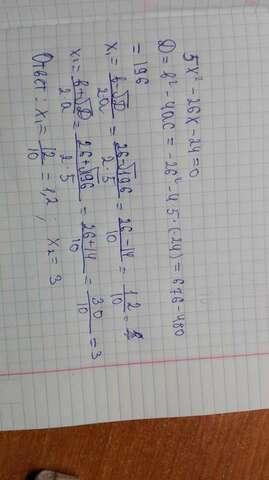 5x² - 26x - 24 = 0
D = b² - 4ac = -26² - 4·5·(-24) = 676 - 480
= 196
x₁ = b-√D / 2a = 26-√196 / 2·5 = 26-14 / 10 = 12 / 10 =
x₂ = b+√D / 2a = 26+√196 / 2·5 = 26+14 / 10 = 30 / 10 = 3
Ответ: x₁ = 12 / 10 = 1,2 ; x₂ = 3